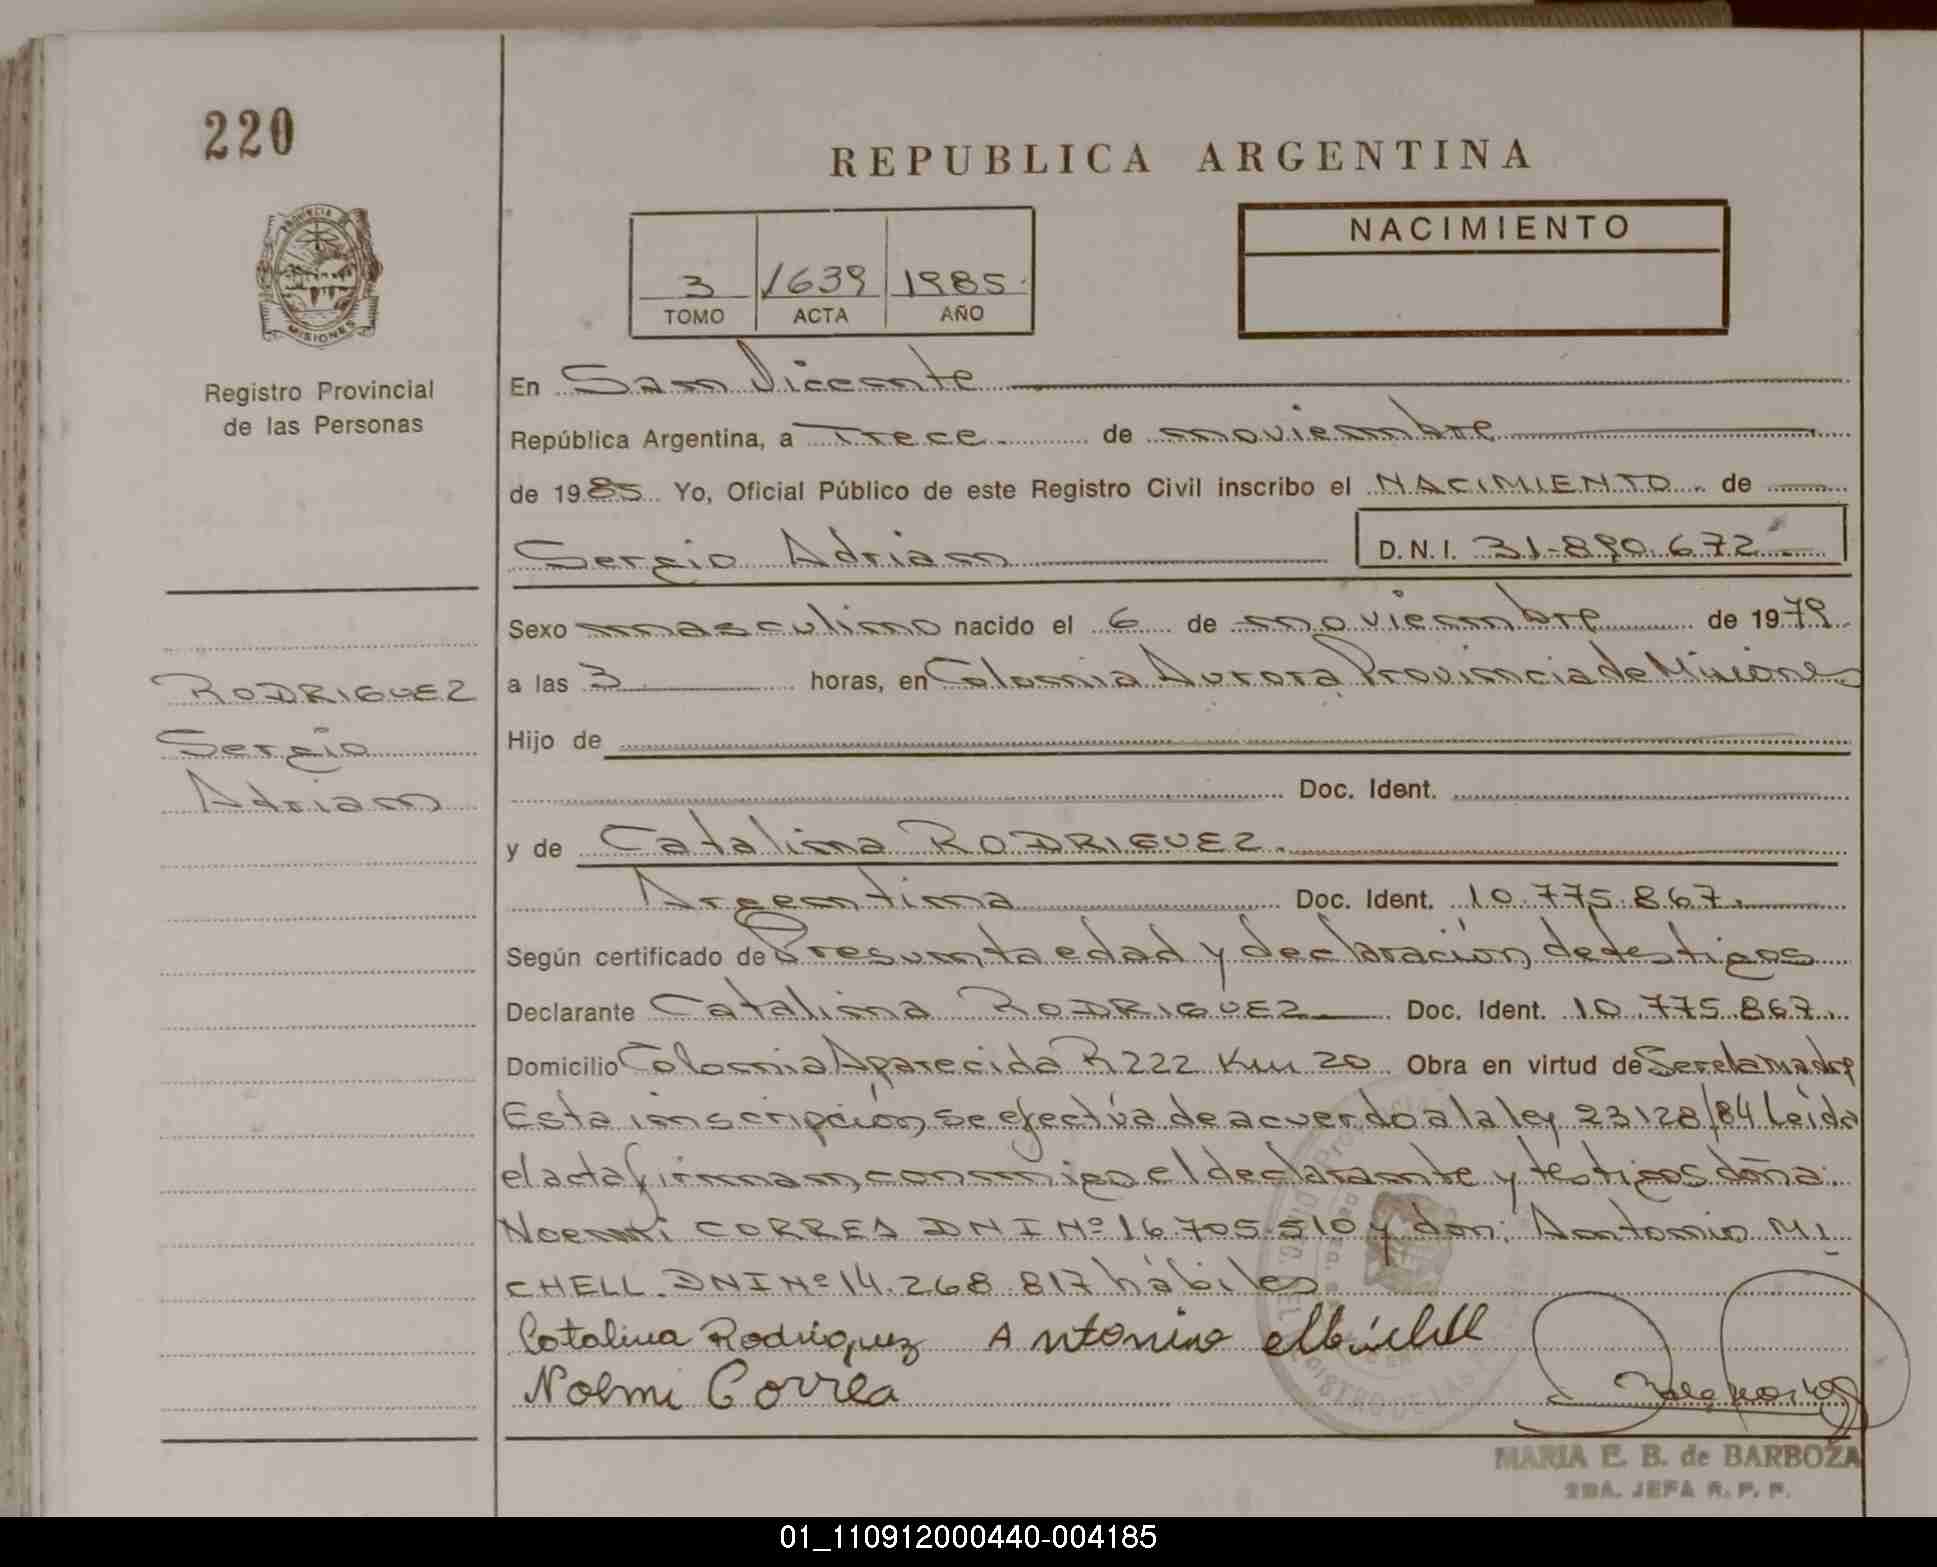 220
REPUBLICA ARGENTINA
PROVINCIA DE MISIONES
Registro Provincial
de las Personas
3 1639 1985
TOMO ACTA AÑO
NACIMIENTO
En San Vicente
República Argentina, a Trece de noviembre
de 1985 Yo, Oficial Público de este Registro Civil inscribo el NACIMIENTO de
Sergio Adrian D.N.I. 31.890.672
Sexo masculino nacido el 6 de noviembre de 1979
a las 3 horas, en Colonia Aurora Provincia de Misiones
RODRIGUEZ
Sergio
Adrian
Hijo de
Doc. Ident.
y de Catalina RODRIGUEZ.
Argentina Doc. Ident. 10.775.867.
Según certificado de Presunta edad y declaración de testigos
Declarante Catalina RODRIGUEZ Doc. Ident. 10.775.867.
Domicilio Colonia Aparecida R 222 Km 20 Obra en virtud de Ser la madre
Esta inscripción se efectúa de acuerdo a la ley 23128/84 Leída
el acta firman conmigo el declarante y testigos doña:
Noemi CORREA DNI Nº 16.705.510 y don: Antonio MI
CHELL. DNI Nº 14.268.817 hábiles
Catalina Rodriguez Antonino Michell
Noemi Correa
MARIA E. B. de BARBOZA
2DA. JEFA R. P. P.
01_110912000440-004185